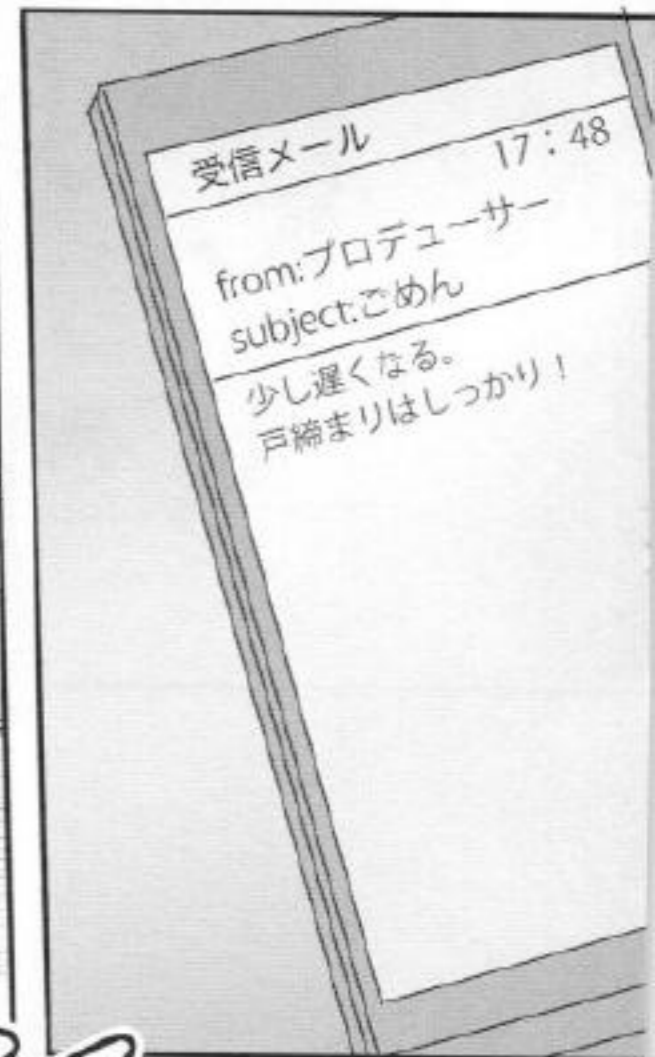 受信メール 17:48
from:プロデューサー
subject:ごめん
少し遅くなる。
戸締まりはしっかり！